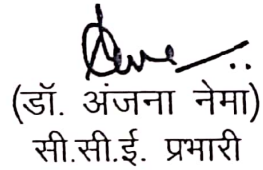 (डॉ. अंजना नेमा)
सी.सी.ई. प्रभारी